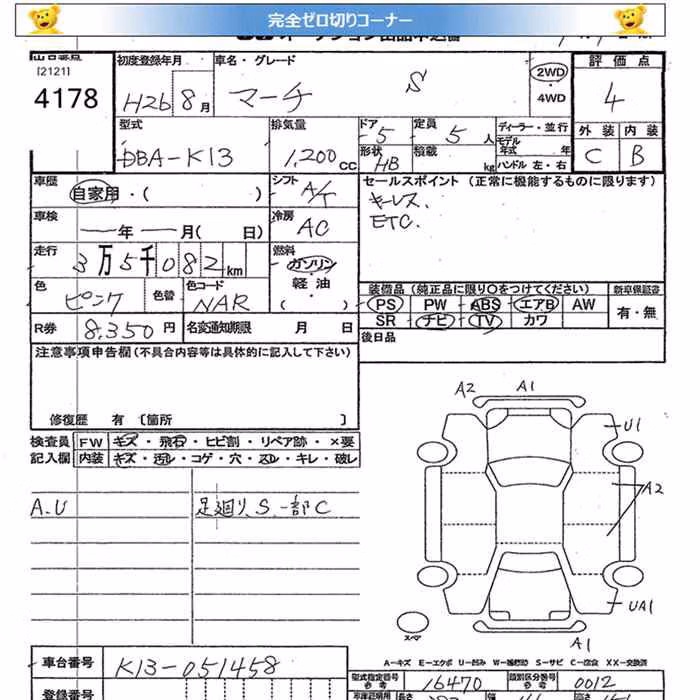 完全ゼロ切りコーナー
[2121]
4178
初度登録年月
H26 8月
車名・グレード
マーチ S
2WD
・
4WD
評価点
4
外装 内装
C B
型式
DBA-K13
排気量
1,200 CC
ドア
5
定員
5 人
形状
HB
積載
kg
ディーラー・並行
モデル年式 年
ハンドル 左・右
車歴
自家用・( )
シフト
A/T
セールスポイント (正常に機能するものに限ります)
キーレス.
ETC.
車検
年 月( 日)
冷房
AC
走行
3万5千082km
燃料
ガソリン
軽・油
( )
色
ピンク
色替
色コード
NAR
装備品(純正品に限り○をつけてください)
PS PW ABS エアB AW
SR ナビ TV カワ
新車保証書
有・無
R券 8,350円
名変通知期限 月 日
後日品
注意事項申告欄(不具合内容等は具体的に記入して下さい)
修復歴 有 〔箇所 〕
検査員記入欄
FW キズ・飛石・ヒビ割・リペア跡・×要
内装 キズ・汚レ・コゲ・穴・スレ・キレ・破レ
A.U
足廻り、S.一部C
A2 A1
U1
A2
UA1
A1
スペア
A-キズ E-エクボ U-凹み W-補修跡 S-サビ C-腐食 XX-交換済
車台番号
K13-051458
型式指定番号
参考
16470
類別区分番号
参考
0012
登録番号
長さ